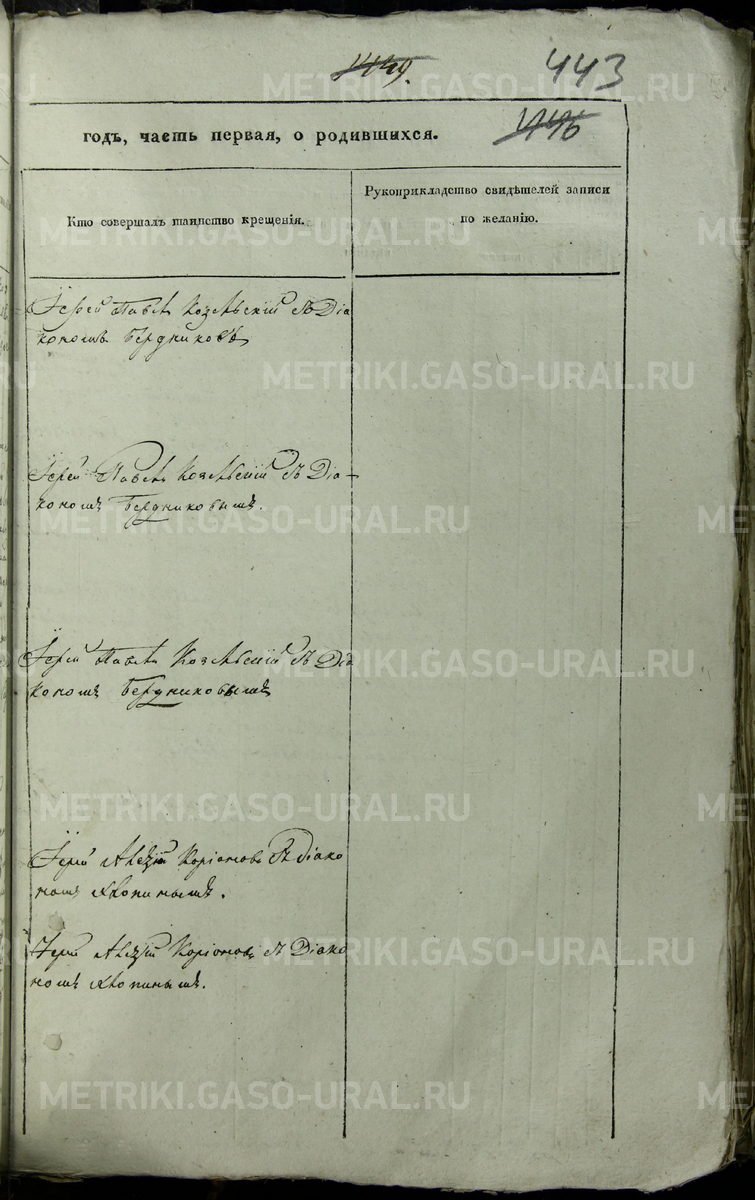 443
годъ, часть первая, о родившихся.
Кто совершалъ таинство крещенія.
Рукоприкладство свидѣтелей записи
по желанію.
Іерей Павелъ Козельскій съ Діа
кономъ Бердниковъ
Іерей Павелъ Козельскій съ Діа-
кономъ Бердниковымъ.
Іерей Павелъ Козельскій съ Діа
кономъ Бердниковымъ
Іерей Алексій Коріоновъ съ Діако
номъ
Іерей Алексій Коріоновъ съ Діако
номъ
METRIKI.GASO-URAL.RU